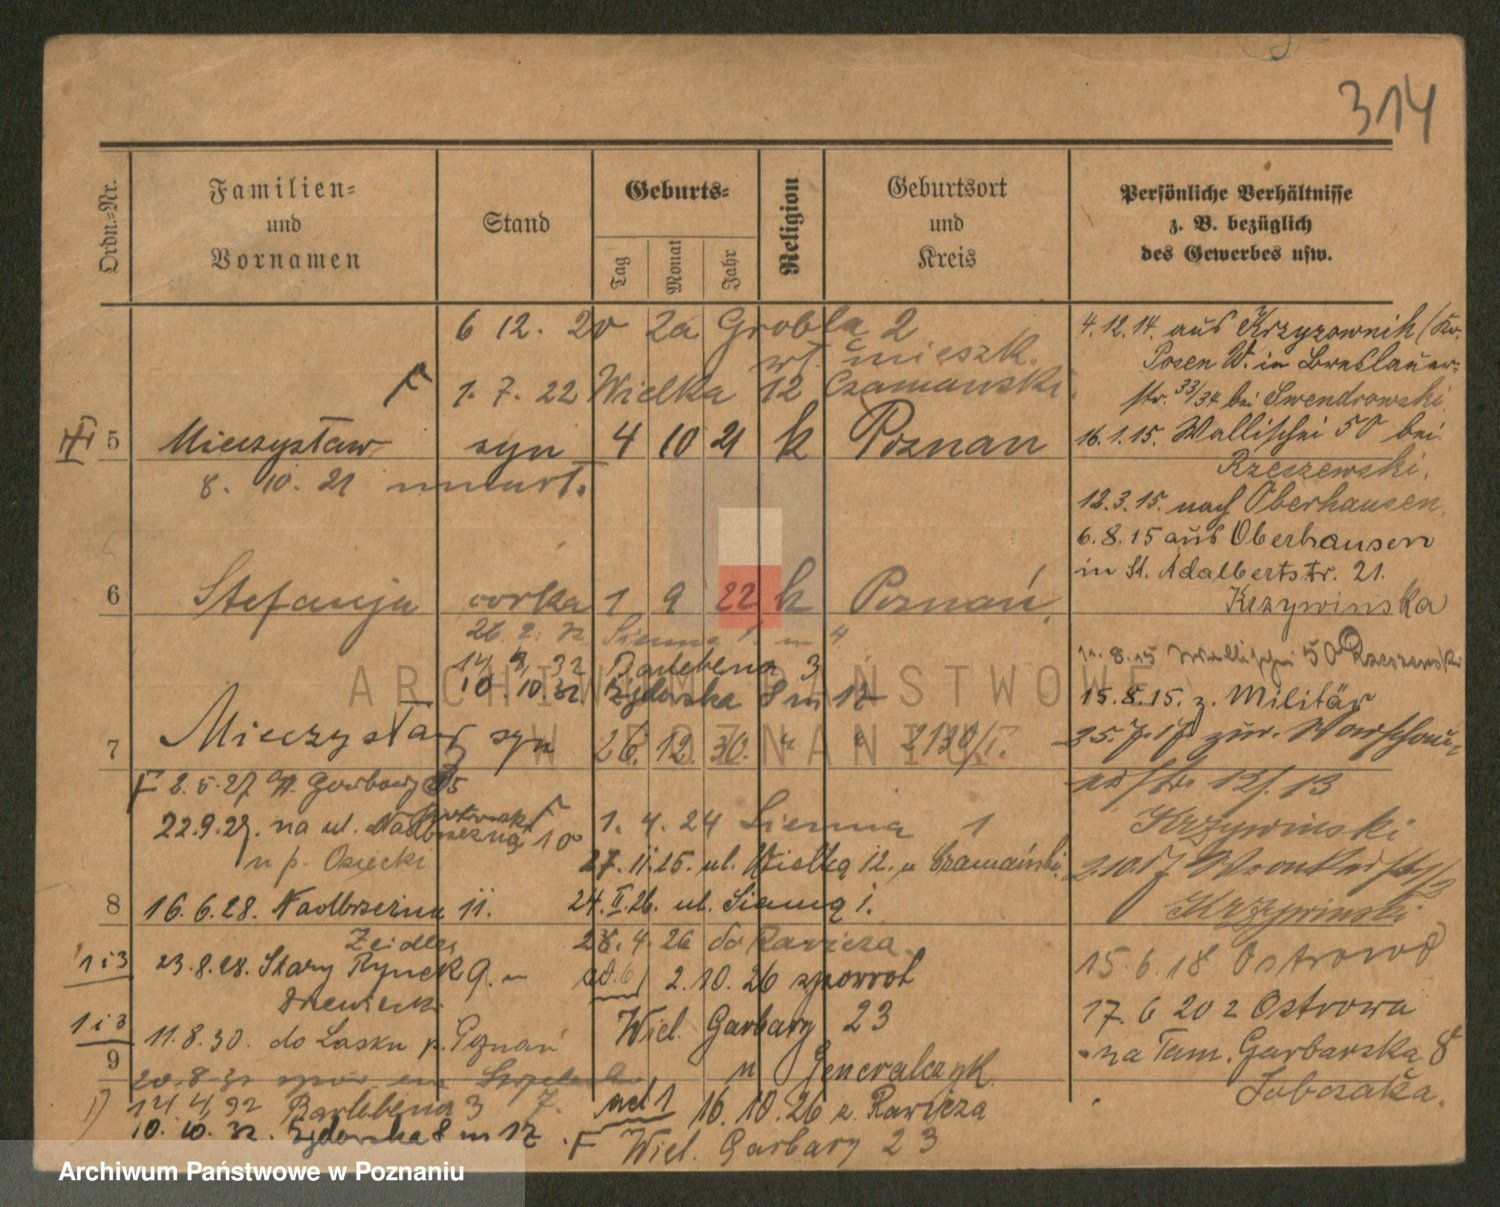 314
Ordn.=Nr.
Familien=
und
Vornamen
Stand
Geburts=
Tag
Monat
Jahr
Religion
Geburtsort
und
Kreis
Persönliche Verhältnisse
z. B. bezüglich
des Gewerbes usw.
6 12. 20 za Grobla 2
wł. mieszk.
1. 7. 22 Wielka 12 Czamanski
5 Mieczysław syn 4 10 21 k Poznan
8. 10. 21
6 Stefanja córka 1 9 22 k Poznań
26. 2. 32 Sienna 1 m 4
14. 4. 32 Bartebena 3
10. 10. 32 Żydowska 8 m 12
7 Mieczysław syn 26. 12. 30. " " 2130/I.
F 2. 5. 27 W. Garbary 25
22.9.27. na ul. Nadbrzeżną 10
u p. Osiecki
1. 4. 24 Sienna 1
27. 11. 25. ul. Wielką 12. u Czamański
8 16. 6. 28. Nadbrzeżna 11.
Zeidler
24. II. 26. ul. Sienną 1.
28. 4. 26 do Rawicza
1 i 3 23. 8. 28. Stary Rynek 9.
ad. 6) 2. 10. 26 spowrot
Wiel. Garbary 23
u Generalczyk
1 i 3 11. 8. 30. do Lasku p. Poznań
9
14. 4. 32 Bartebena 3
10. 10. 32. Żydowska 8 m 12
ad 1 16. 10. 26 z. Rawicza
F Wiel. Garbary 23
4. 12. 14. aus Krzyzownik (Kr.
Posen W. in Breslauer-
str. 33/34 bei Swendrowski
16. 1. 15. Wallischei 50 bei
Rzeszewski.
12. 3. 15. nach Oberhausen.
6. 8. 15 aus Oberhausen
in St. Adalbertstr. 21.
Krzywinska
8. 15 Wallischei 50 Rzeszewski
15. 8. 15. z. Militär
25. 7. 17 zur. Warschau-
12/13
Krzywinski
Krzywinski
15. 6. 18 Ostrowo
17. 6 20 z Ostrowa
na Tam. Garbarska 8
Sobczaka.
ARCHIWUM PAŃSTWOWE
W POZNANIU
Archiwum Państwowe w Poznaniu